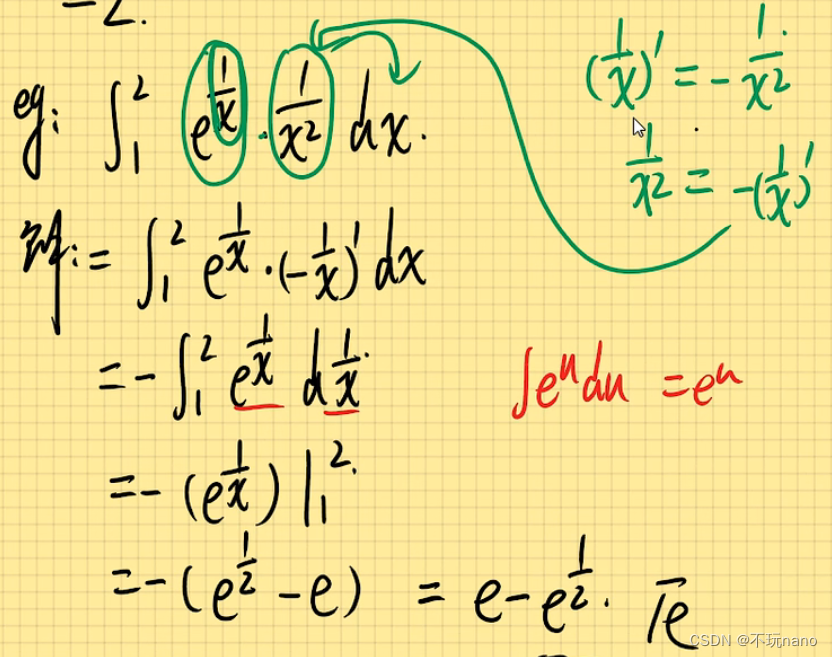 -2.
eg: ∫₁² e^(1/x) · 1/x² dx.
(1/x)' = -1/x²
1/x² = -(1/x)'
解: = ∫₁² e^(1/x) · (-1/x)' dx
= - ∫₁² e^(1/x) d 1/x.
∫e^u du = e^u
= - (e^(1/x)) |₁².
= - (e^(1/2) - e) = e - e^(1/2). √e
CSDN @不玩nano